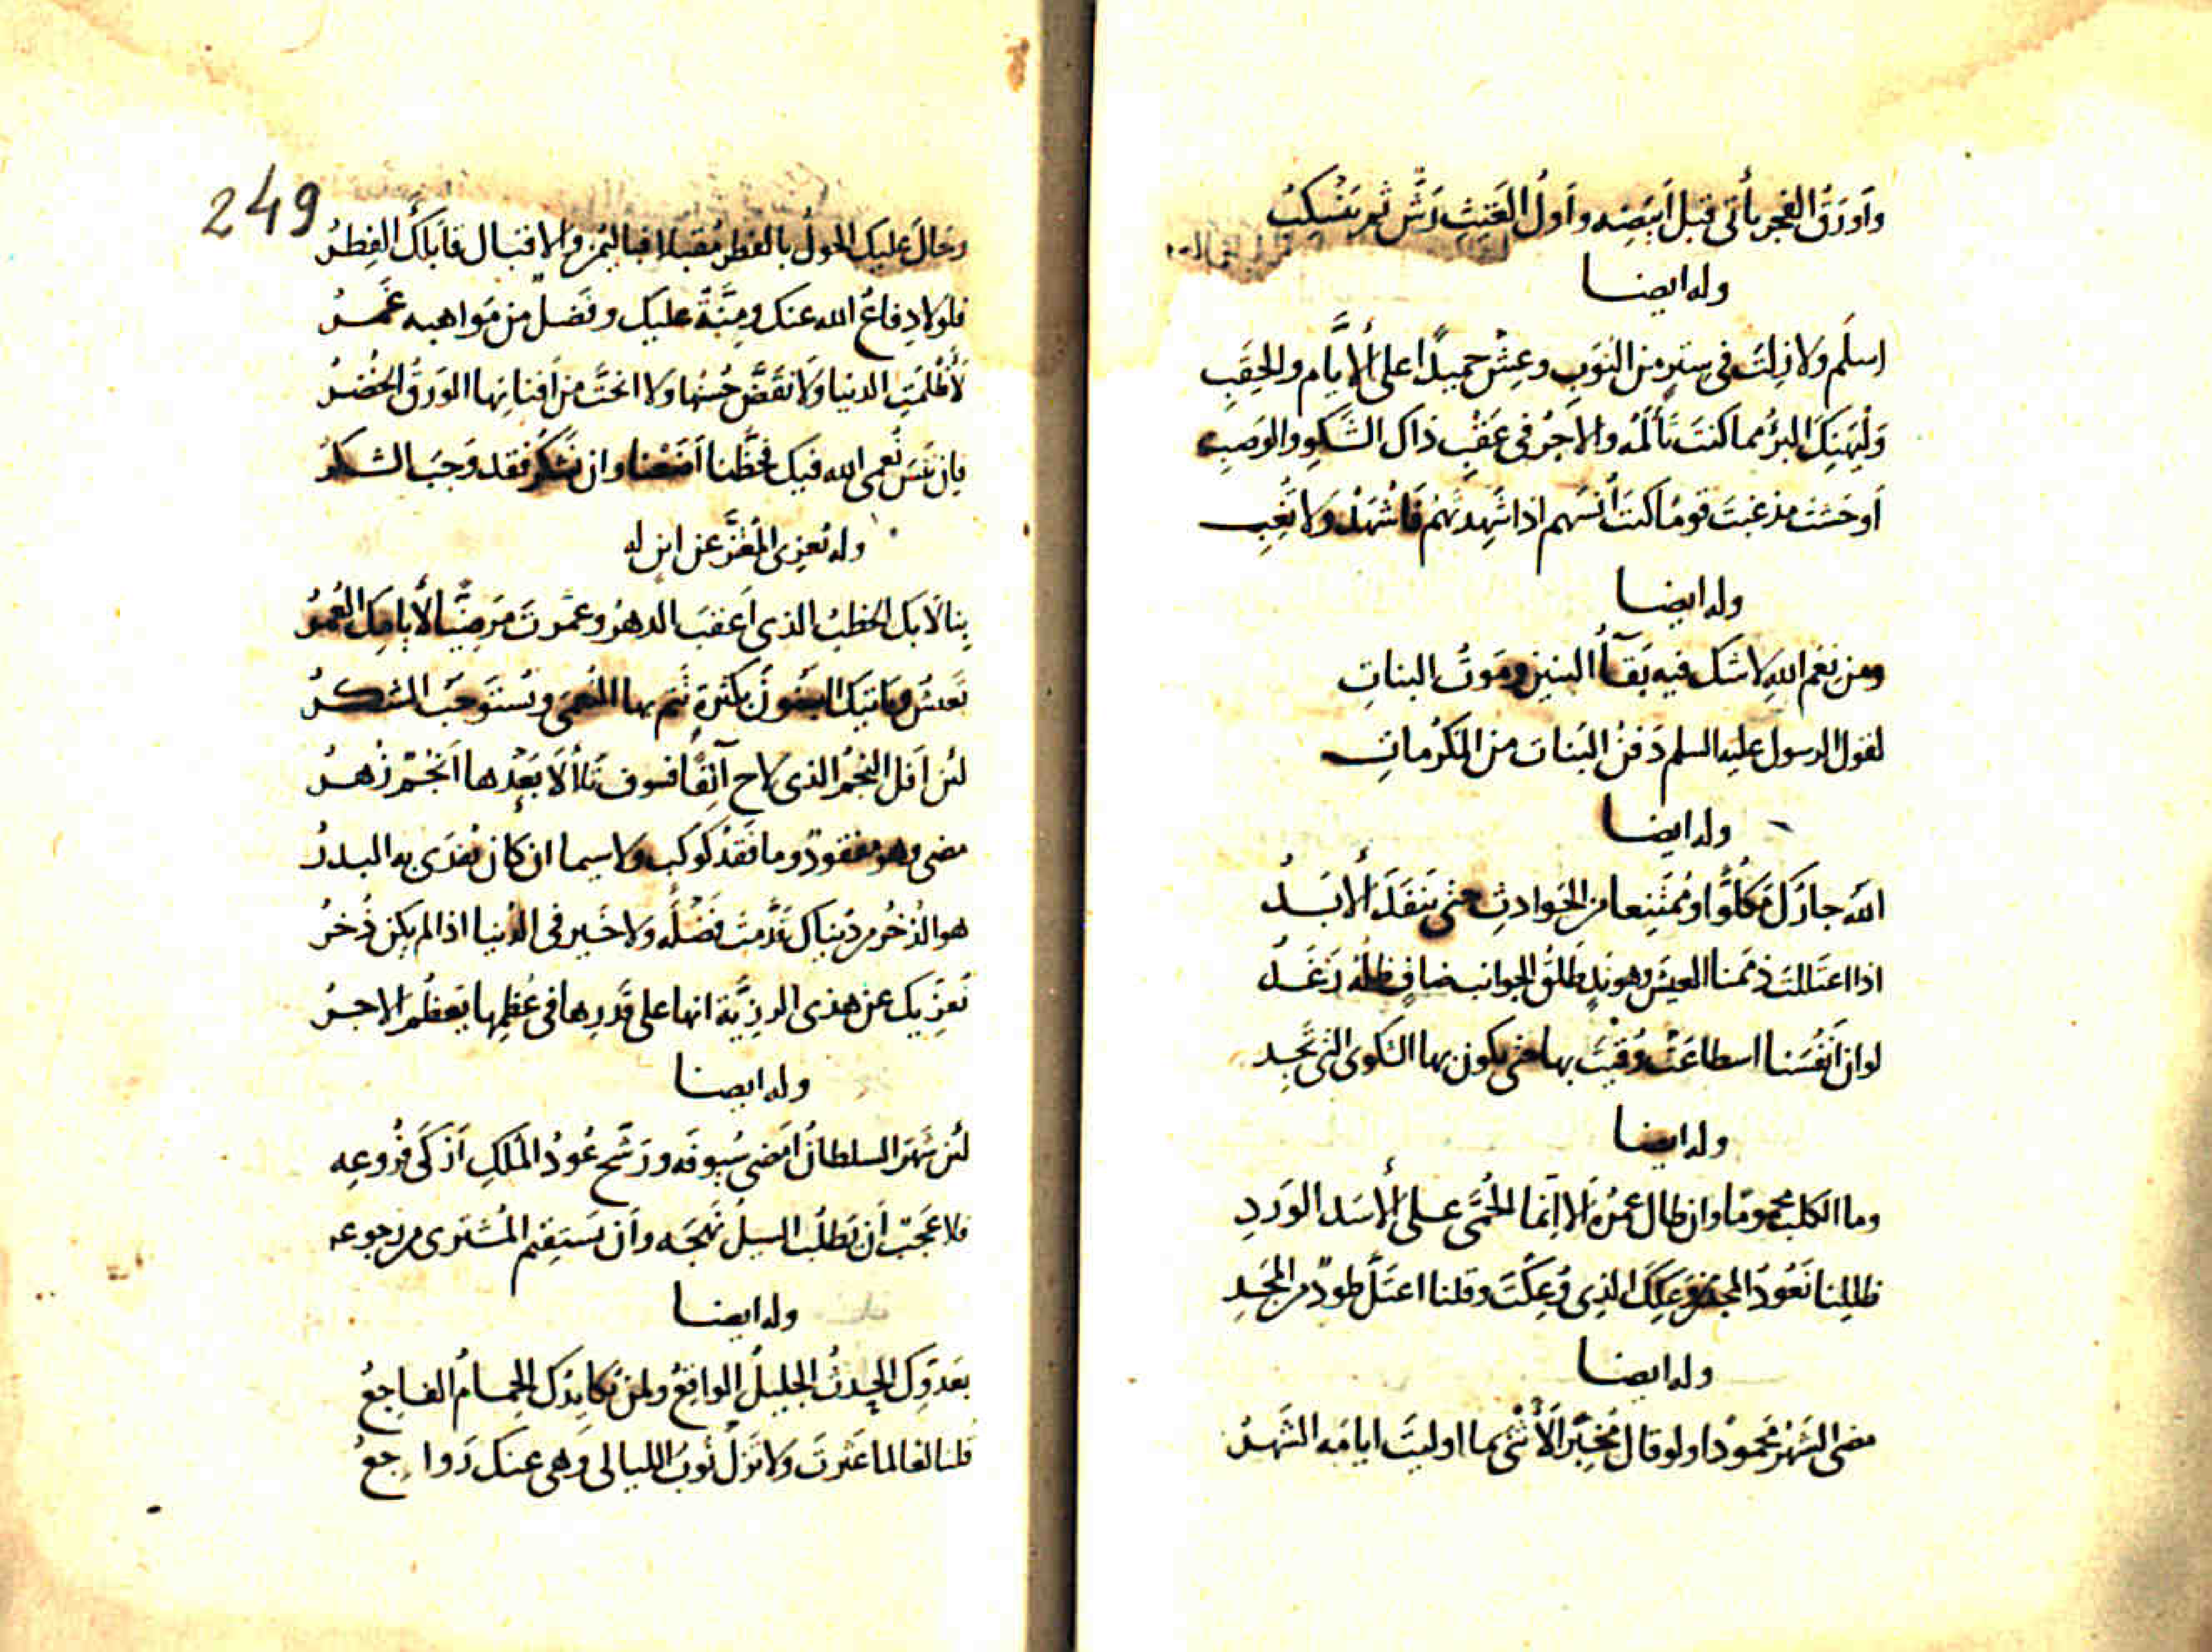 وأورق الفجر يأتي قبل أبيضه وأول الغيث رش ثم ينسكب
وله ايضا
اسلم ولا زلت في ستر من النوب وعش حميدا على الأيام والحقب
وليهنك البرؤ مما كنت تألمه والاجر في عقب ذاك الشكو والوصب
أوحشت مذ غبت قوما كنت أنسهم اذا شهدتهم فاشهد ولا تغب
وله ايضا
ومن نعم الله لا شك فيه بقآء البنين وموت البنات
لقول الرسول عليه السلم دفن البنات من المكرمات
وله ايضا
الله جارك مكلوا وممتنعا من الحوادث حتى ينفد الأبد
اذا اعتللت ذممنا العيش وهو ند طلق الجوانب ضاف ظله رغد
لو ان أنفسنا اسطاعت وقيت بها حتى يكون بها الشكوى التي تجد
وله ايضا
وما الكلب محموما وان طال عمره ألا انما الحمى على الأسد الورد
ظللنا نعود المجد من وعكك الذي وعكت وقلنا اعتل طود من المجد
وله ايضا
مضى الشهر محمودا ولو قال مخبرا لأثنى بما اوليت ايامه الشهر
249
وحال عليك الحول بالفطر مقبلا فباليمن والاقبال قابلك الفطر
فلولا دفاع الله عنك ومنة عليك وفضل من مواهبه غمر
لأظلمت الدنيا ولانقض حسنها ولا انحت من افنانها الورق الخضر
فان ننس نعمى الله فيك فحظنا أضعنا وان نشكر فقد وجب الشكر
وله يعزى المعتز عن ابن له
بنا لا بك الخطب الذي أعقب الدهر وعمرت مرضيا لأيامك العمر
تعيش وياتيك البنون بكثرة تتم بها النعمى وتستوجب الشكر
لئن أفل النجم الذي لاح آنفا فسوف تلألا بعدها أنجم زهر
مضى وهو مفقود وما فقد كوكب ولا سيما ان كان يفدى به البدر
هو الذخر من دنياك قدمت فضله ولا خير في الدنيا اذا لم يكن ذخر
نعزيك عن هذى الرزية انها على قدرها في عظمها يعظم الاجر
وله ايضا
لئن شهر السلطان امضى سيوفه ورشح عود الملك أزكى فروعه
فلا عجب أن يطلب السيل نهجه وأن يستقيم المشترى من رجوعه
وله ايضا
يعدوك الحدث الجليل الواقع ولمن يكايدك الحمام الفاجع
قلنا لعا لما عثرت ولا تزل نوب الليالي وهى عنك رواجع